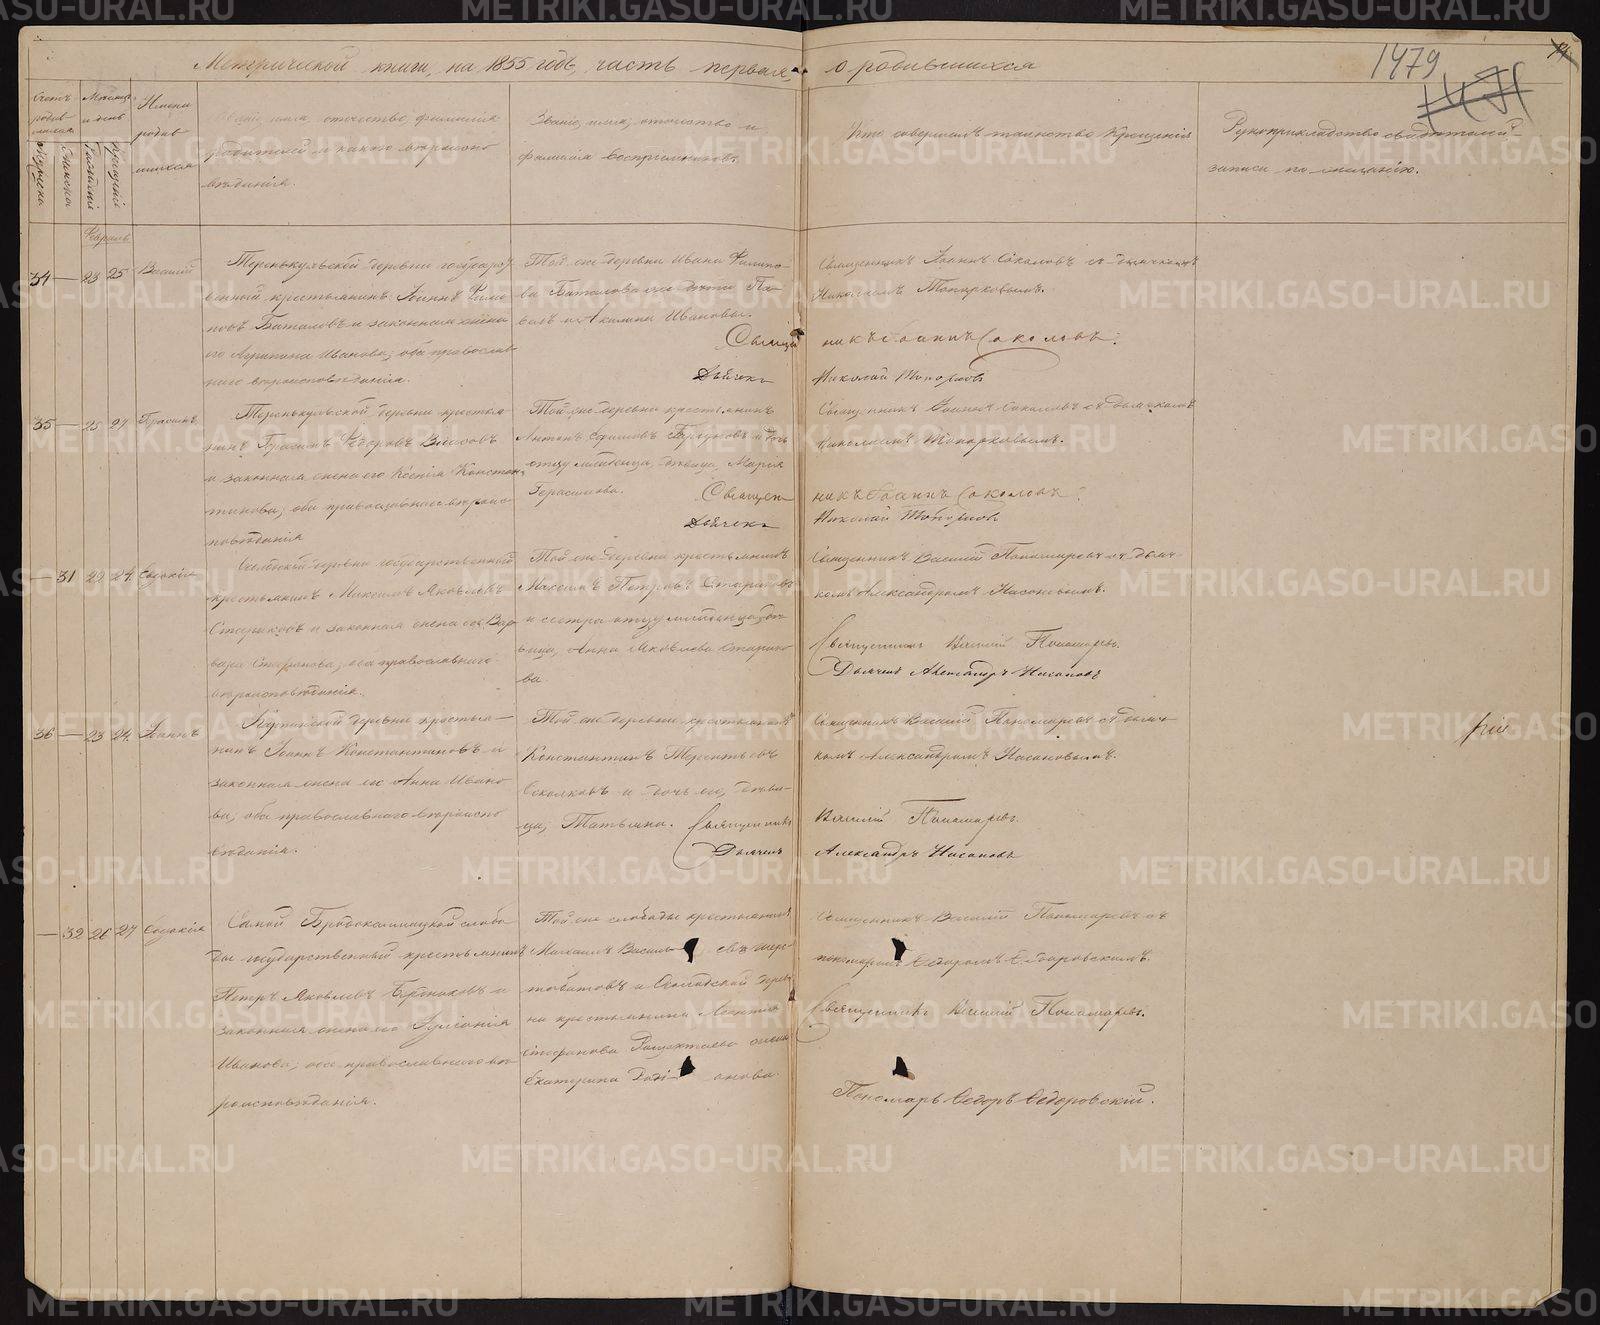 Метрической книги, на 1855 годъ, часть первая, о родившихся
1479
Счетъ родив-
шихся
Мѣсяцъ
и день
Имена
родив-
шихся
Званіе, имя, отчество, фамилія
родителей и какого вѣроиспо-
вѣданія.
Званіе, имя, отчество и
фамилія воспріемниковъ.
Кто совершалъ таинство крещенія
Рукоприкладство свидѣтелей
записи по желанію.
Мужеска
Женска
Рожденія
Крещенія
Февраль
34 — 23 25 Василій
Теренькульской деревни государст-
венный крестьянинъ Іоаннъ
Баталовъ и законная жена
его Агрипина Иванова; оба православ-
наго вѣроисповѣданія.
Той же деревни Ивана Филипо-
ва Баталова дѣти Па-
велъ и Акилина Ивановы.
Священникъ Іоаннъ Соколовъ съ дьячкомъ
Николаемъ Топорковымъ.
Священникъ Іоаннъ Соколовъ.
Дьячекъ Николай Топорковъ
35 — 25 27 Герасимъ
Теренькульской деревни крестья-
нинъ Герасимъ Ѳедоровъ Власовъ
и законная жена его Ксенія Констан-
тинова; оба православнаго вѣроис-
повѣданія
Той же деревни крестьянинъ
Антонъ Ефимовъ и дочь
отцу младенца, дѣвица, Марія
Герасимова.
Священникъ Іоаннъ Соколовъ съ дьячкомъ
Николаемъ Топорковымъ.
Священникъ Іоаннъ Соколовъ.
Дьячекъ Николай Топорковъ
— 31 22 24 Евдокія
деревни государственный
крестьянинъ Максимъ Яковлевъ
Стариковъ и законная жена его Вар-
вара Стефанова; оба православнаго
вѣроисповѣданія.
Той же деревни крестьянинъ
Максимъ Петровъ Стариковъ
и сестра отцу младенца, дѣ-
вица, Анна Яковлева Старико-
ва.
Священникъ Василій Пономаревъ съ дьяч-
комъ Александромъ Насоновымъ.
Священникъ Василій Пономаревъ.
Дьячекъ Александръ Насоновъ
36 — 23 24 Іоаннъ
деревни крестья-
нинъ Іоаннъ Константиновъ и
законная жена его Анна Ивано-
ва; оба православнаго вѣроиспо-
вѣданія.
Той же деревни крестьянинъ
Константинъ Терентьевъ
и дочь его, дѣви-
ца, Татьяна.
Священникъ Василій Пономаревъ съ дьяч-
комъ Александромъ Насоновымъ.
Священникъ Василій Пономаревъ.
Дьячекъ Александръ Насоновъ
— 32 26 27 Евдокія
Самой Бродокалмацкой слобо-
ды государственный крестьянинъ
Петръ Яковлевъ Брюховъ и
законная жена его
Иванова; оба православнаго вѣ-
роисповѣданія.
Той же слободы крестьянинъ
Михаилъ Василь евъ Шерс-
тобитовъ и дерев-
ни крестьянина Леонтія
Стефанова жена
Екатерина Роді- онова.
Священникъ Василій Пономаревъ съ
пономаремъ Ѳедоромъ Ѳедоровскимъ.
Священникъ Василій Пономаревъ.
Пономарь Ѳедоръ Ѳедоровскій.
METRIKI.GASO-URAL.RU